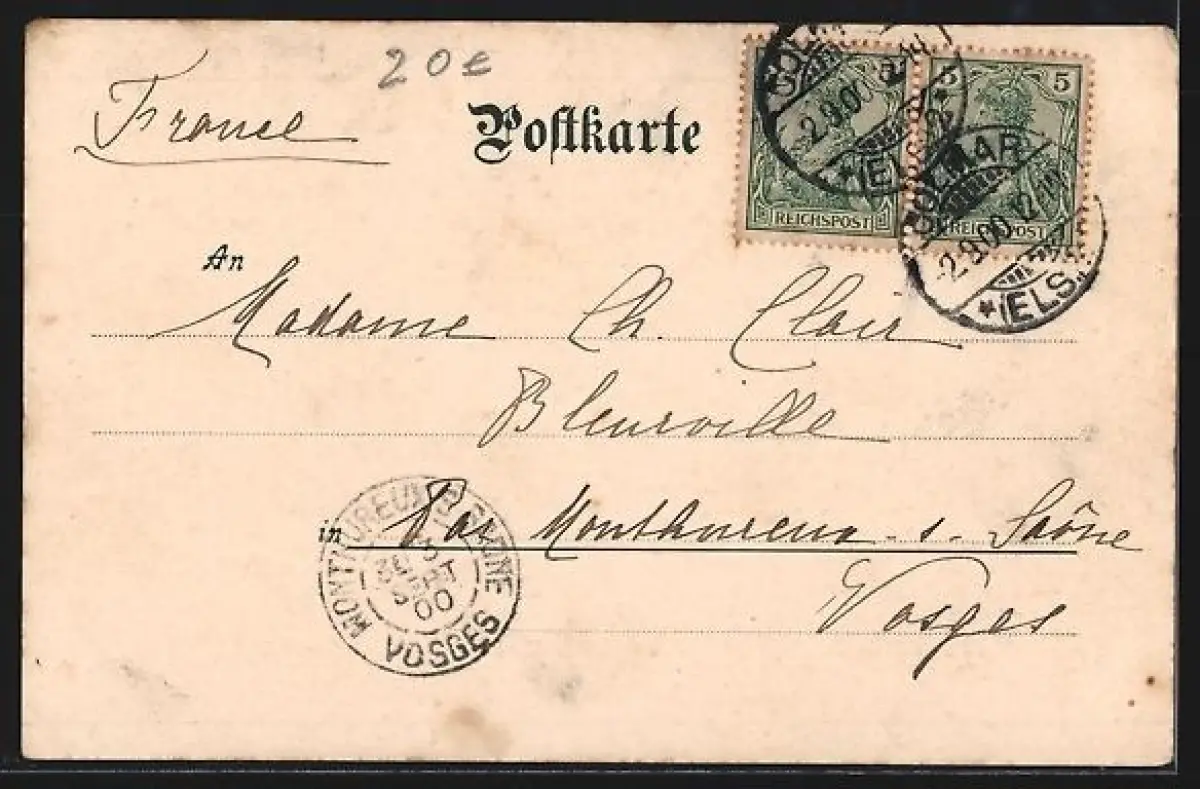 20€
France
Postkarte
5 5
REICHSPOST REICHSPOST
COLMAR
2.9.00.12-1N
* (ELS.)
An
Madame Ch. Clair
Bleurville
in Par Monthureux s. Saône
Vosges
MONTHUREUX-S-SAONE
00
VOSGES